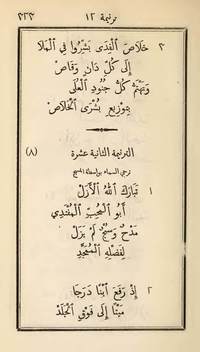 ترنيمة ١٢
٢٢٣
٣ خَلَاصَ الْفِدَى بَشِّرُوا فِي الْمَلَا
إِلَى كُلِّ دَانٍ وَقَاصْ
وَيَهْتَمُّ كُلُّ جُنُودِ الْعُلَى
بِتَوْزِيعِ بُشْرَى الْخَلَاصْ
الترنيمة الثانية عشرة
(٨)
ترجي السماء بواسطة المسيح
١ تَبَارَكَ اللهُ الْأَزَلْ
أَبُو الْمَسِيحِ الْمُفْتَدِي
مَدْحٌ وَسُبْحٌ لَمْ يَزَلْ
لِفَضْلِهِ الْمُمَجَّدِ
٢ إِذْ رَفَعَ ابْنًا دَرَجَا
مَيْتًا إِلَى فَوْقِ الْجَلَدْ